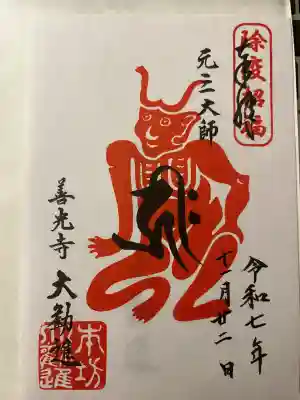 除疫招福
奉拝
元三大師
令和七年
十一月廿二日
善光寺
大勧進
本坊
大勧進